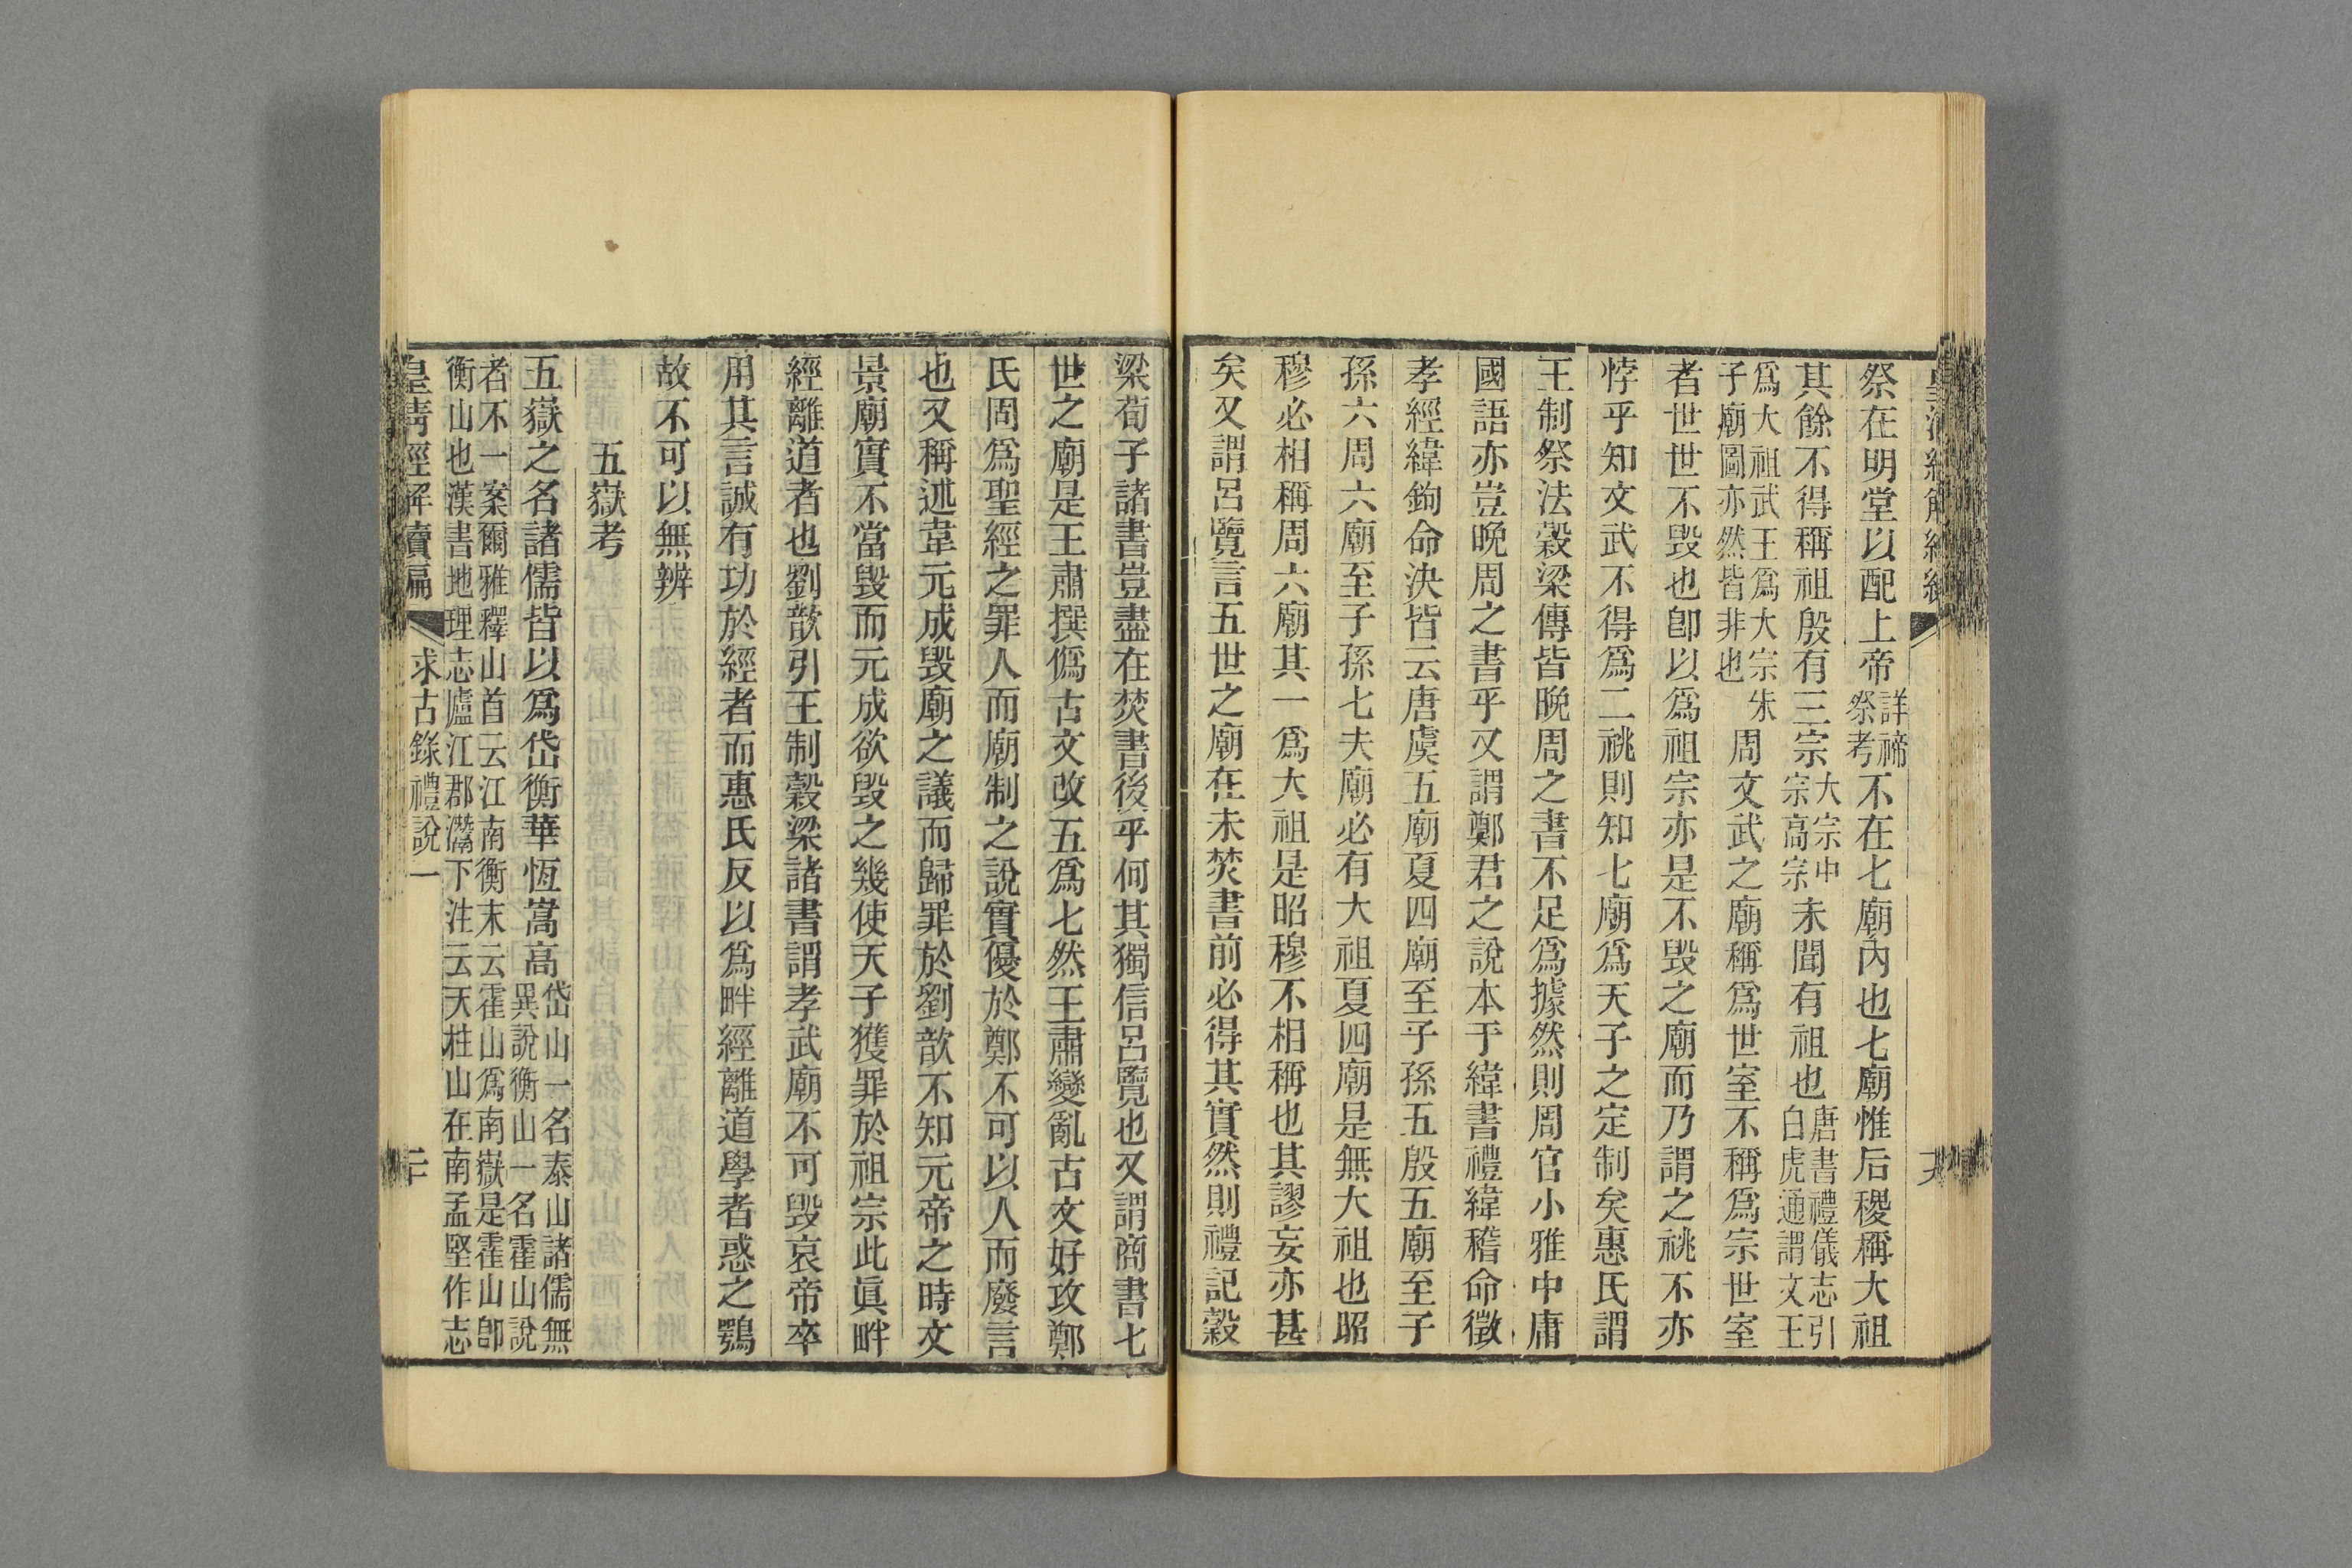 祭在明堂以配上帝詳禘祭考不在七廟內也七廟惟后稷稱大祖
其餘不得稱祖殷有三宗大宗中宗高宗未聞有祖也唐書禮儀志引白虎通謂文王
爲大祖武王爲大宗朱子廟圖亦然皆非也周文武之廟稱爲世室不稱爲宗世室
者世世不毀也卽以爲祖宗亦是不毀之廟而乃謂之祧不亦
悖乎知文武不得爲二祧則知七廟爲天子之定制矣惠氏謂
王制祭法穀梁傳皆晚周之書不足爲據然則周官小雅中庸
國語亦豈晚周之書乎又謂鄭君之說本于緯書禮緯稽命徵
孝經緯鉤命決皆云唐虞五廟夏四廟至子孫五殷五廟至子
孫六周六廟至子孫七夫廟必有大祖夏四廟是無大祖也昭
穆必相稱周六廟其一爲大祖是昭穆不相稱也其謬妄亦甚
矣又謂呂覽言五世之廟在未焚書前必得其實然則禮記穀
梁荀子諸書豈盡在焚書後乎何其獨信呂覽也又謂商書七
世之廟是王肅撰僞古文改五爲七然王肅變亂古文好攻鄭
氏固爲聖經之罪人而廟制之說實優於鄭不可以人而廢言
也又稱述韋元成毀廟之議而歸罪於劉歆不知元帝之時文
景廟實不當毀而元成欲毀之幾使天子獲罪於祖宗此眞畔
經離道者也劉歆引王制穀梁諸書謂孝武廟不可毀哀帝卒
用其言誠有功於經者而惠氏反以爲畔經離道學者惑之鶚
故不可以無辨
五嶽考
五嶽之名諸儒皆以爲岱衡華恆嵩高岱山一名泰山諸儒無異說衡山一名霍山說
者不一案爾雅釋山首云江南衡末云霍山爲南嶽是霍山卽衡山也漢書地理志廬江郡灊下注云天柱山在南孟堅作志
皇清經解續編 求古錄禮說一